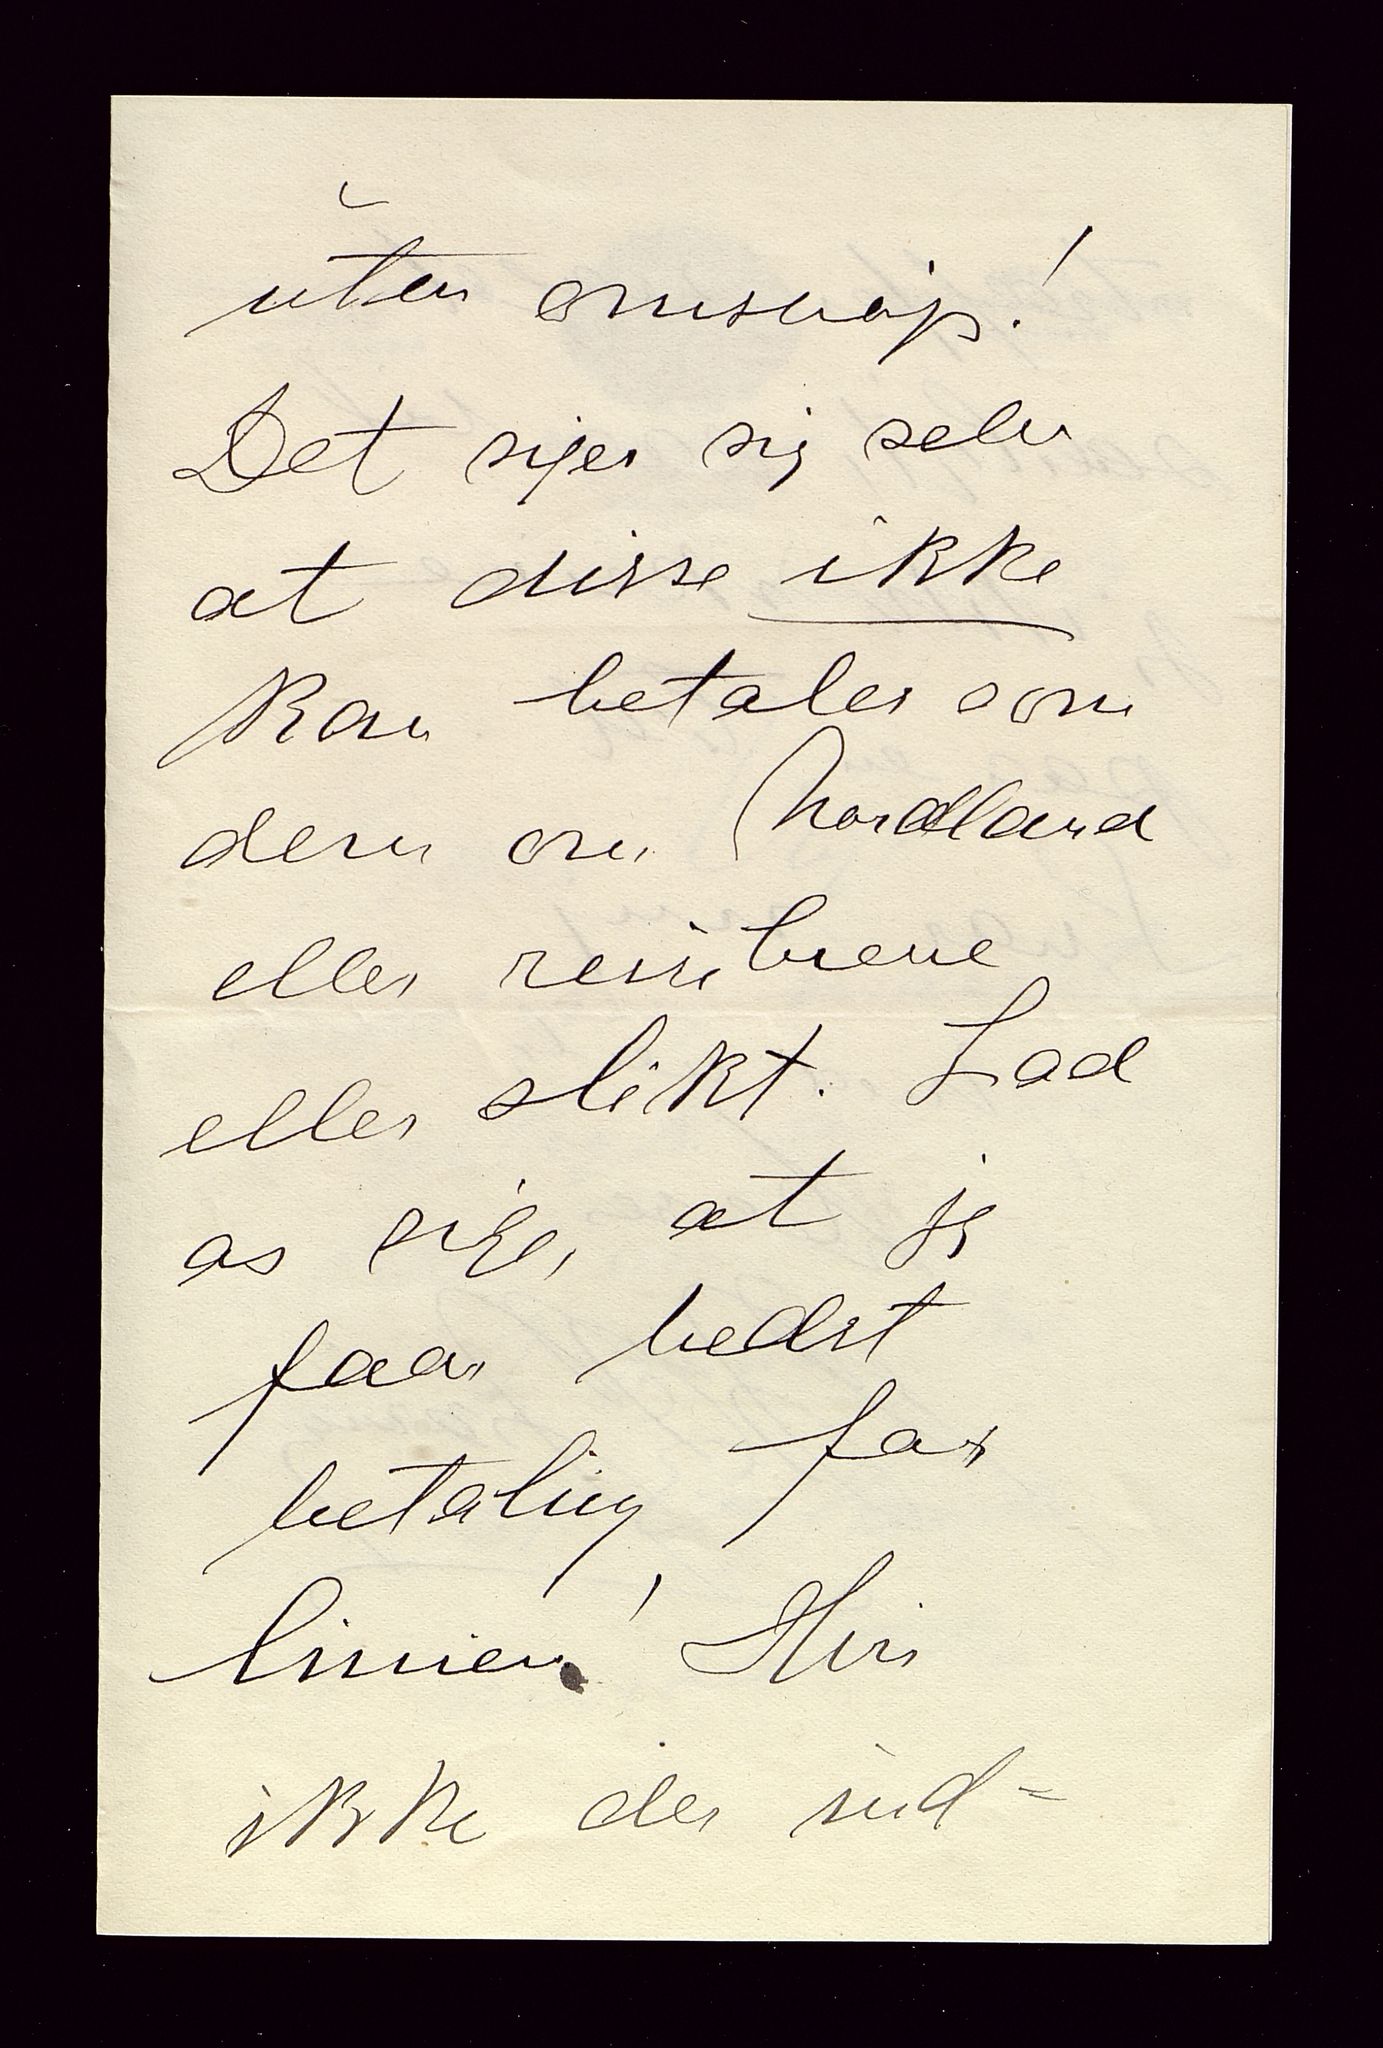 uten omsvøp!
Det siges sig selv
at disse ikke
kan betales som
dem om Nordland
eller reisebreve
eller slikt. Lad
os sige, at jeg
faar bedst
betaling for
linien! Hvis
ikke der ind=